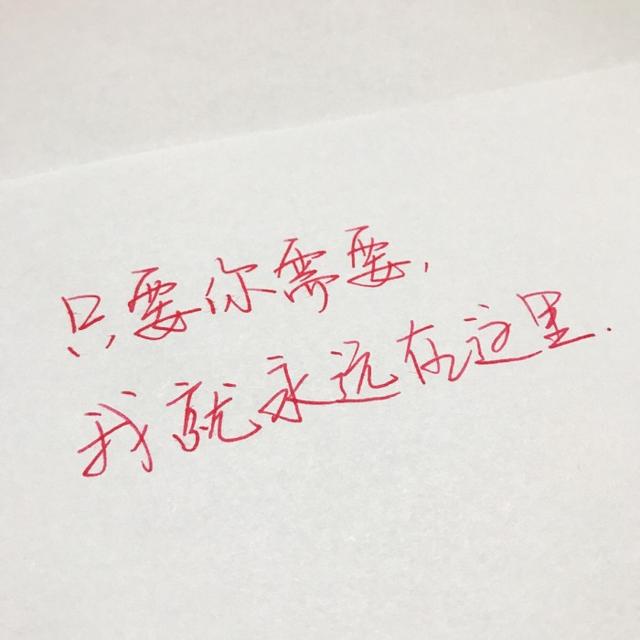 只要你需要,
我就永远在这里.